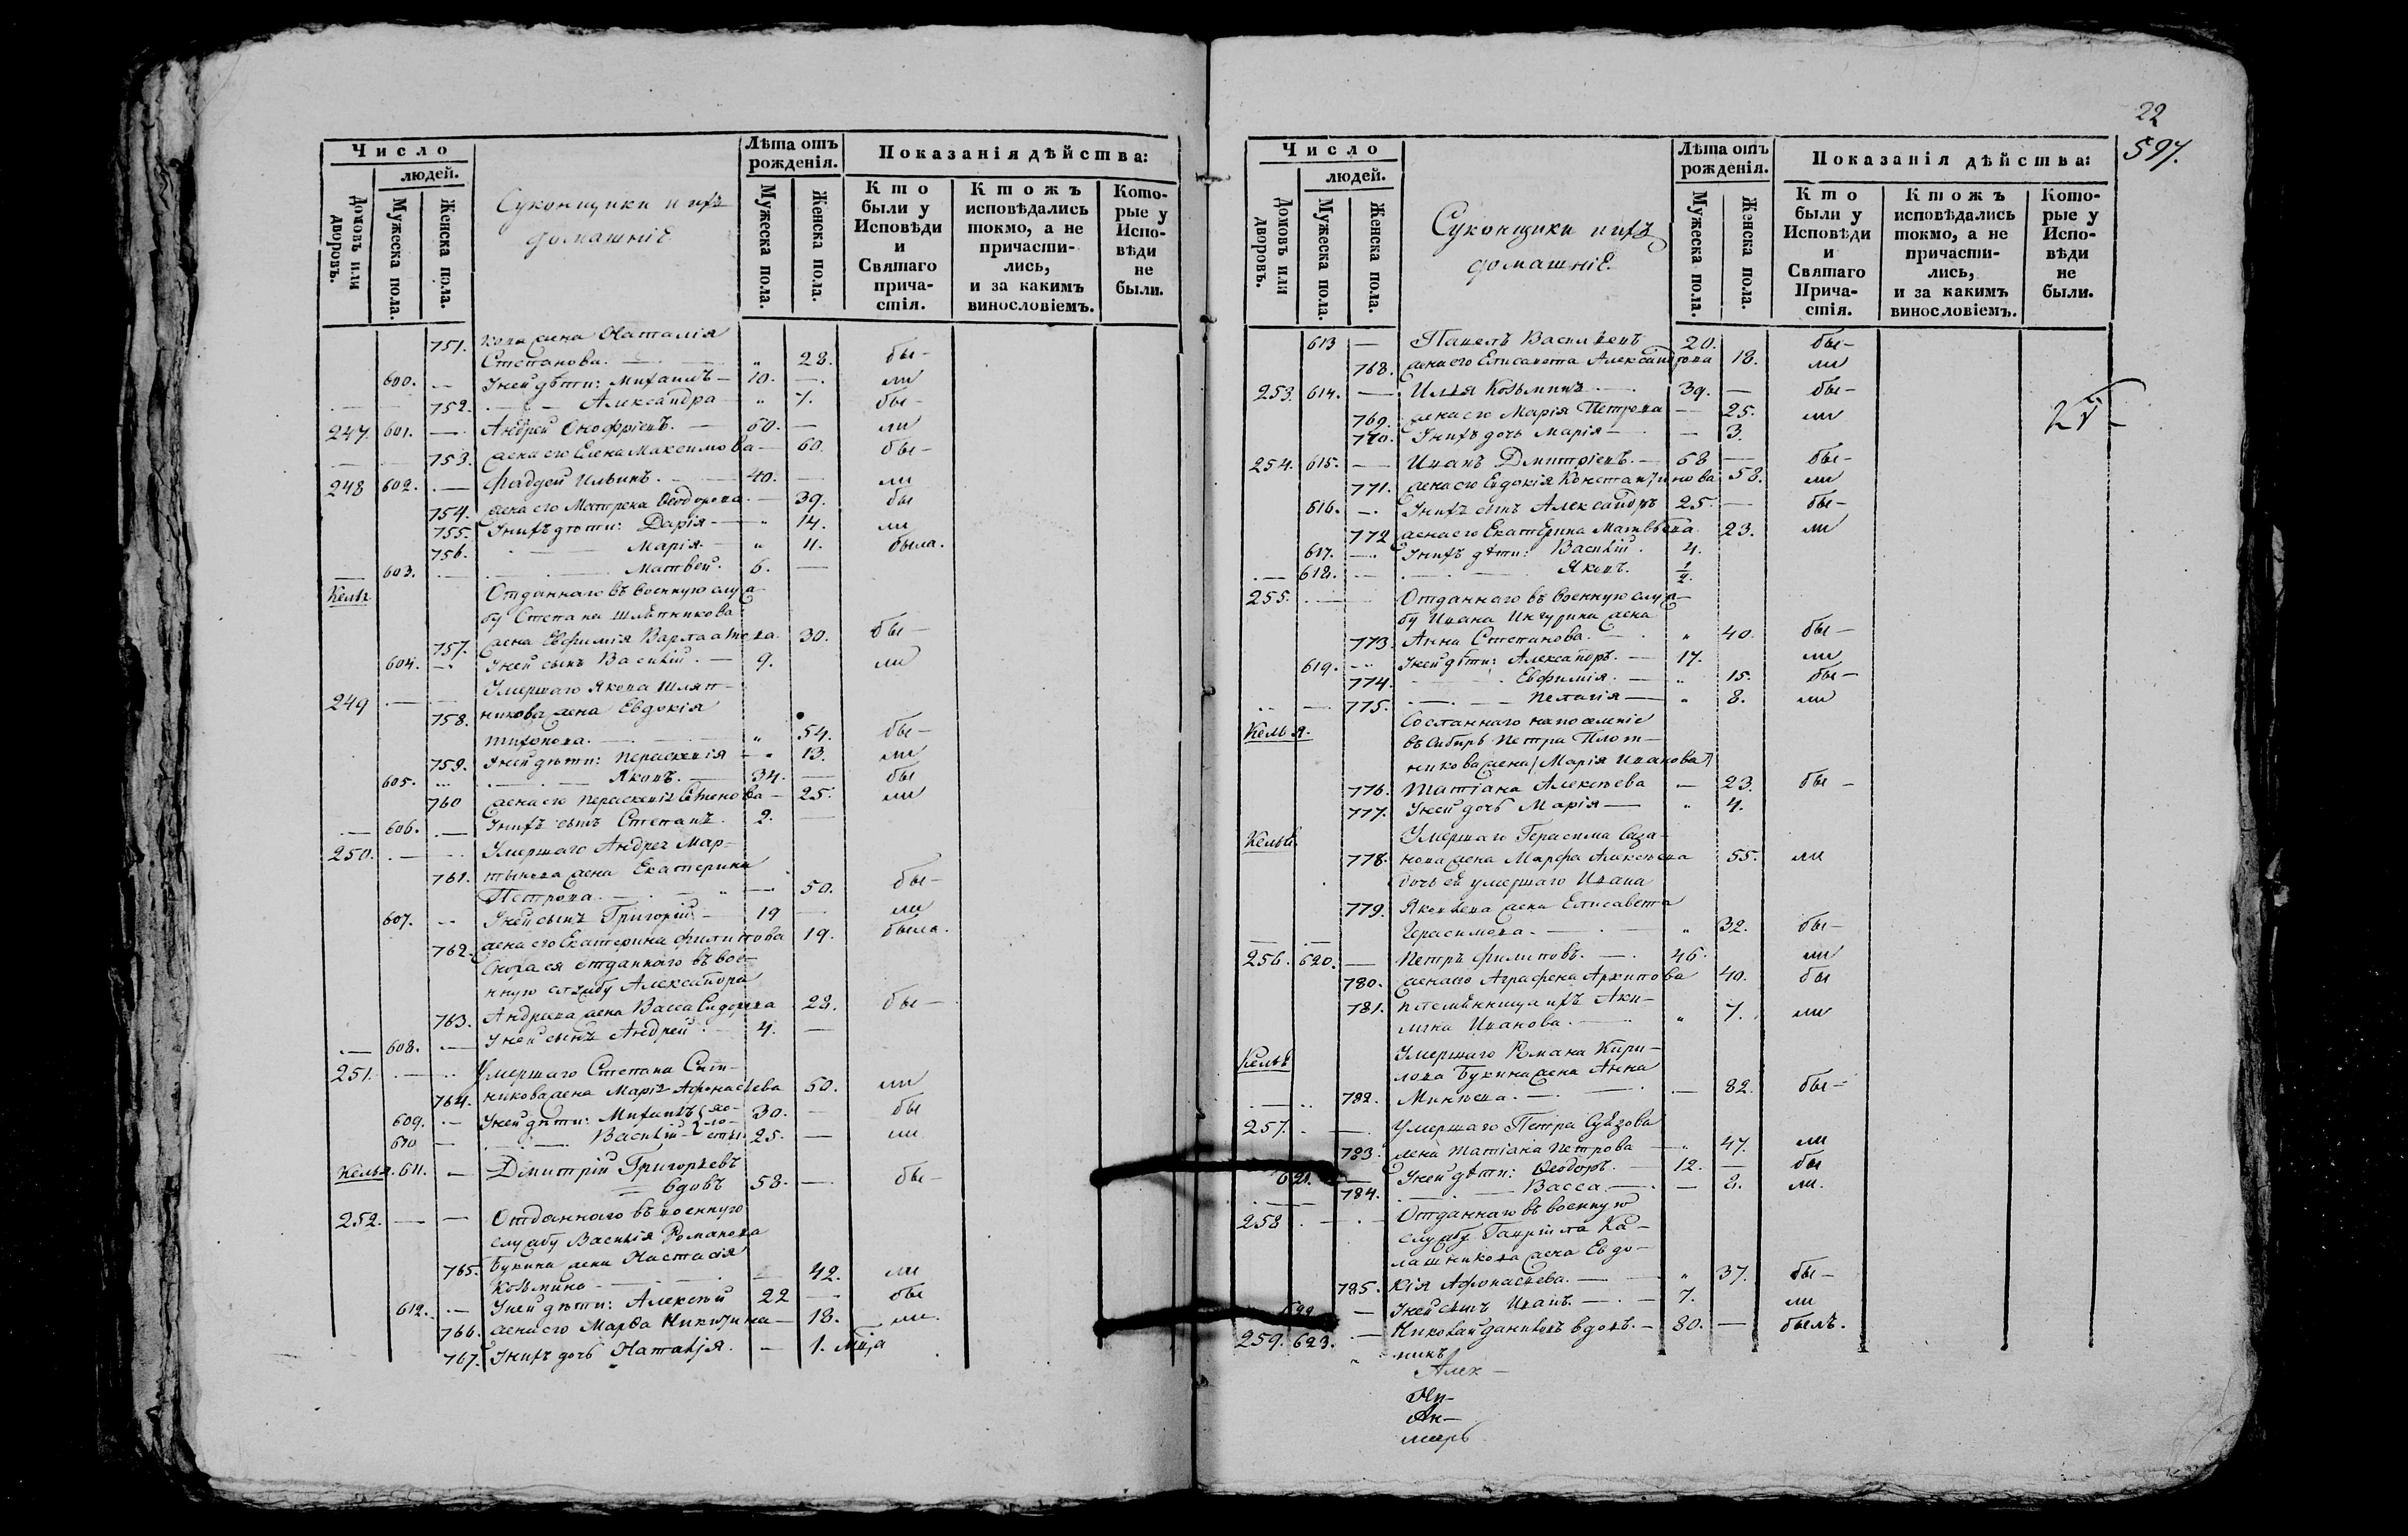 Число
людей.
Домовъ или дворовъ.
Мужеска пола.
Женска пола.
Суконщики и ихъ
домашніе
Лѣта отъ рожденія.
Мужеска пола.
Женска пола.
Показанія дѣйства:
Кто были у Исповѣди и Святаго причастія.
Ктожъ исповѣдались токмо, а не причастились, и за какимъ винословіемъ.
Которые у Исповѣди не были.
751. кова жена Наталія
Степанова. — " 28. бы-
600. — У ней дѣти: Михаилъ — 10. — ли
752. — Александра — " 7. бы-
247. 601. — Андрей Онофріевъ. — 60. — ли
753. жена его Елена Максимова — 60. бы-
248 602. — Фадей Ильинъ. — 40. — ли
754. жена его Матрена Ѳеодорова. — 39. бы
755. У нихъ дѣти: Дарія — " 14. ли
756. — Марія. — " 11. была.
603. — Матвей. 6. —
Келья Отданнаго въ военную служ-
бу Степана Шляпникова
757. жена Евфимія Варлаамова 30. бы-
604. — У ней сынъ Василій. — 9. ли
249 — Умершаго Якова Шляп-
758. никова жена Евдокія
Тихонова. — " 54. бы-
759. У ней дѣти: Параскевія — " 13. ли
605. — Яковъ. — 34. — бы
760 жена его Параскевія Семенова — 25. ли
606. — У нихъ сынъ Степанъ. 2. —
250. — Умершаго Андрея Мар-
761. тынова жена Екатерина
Петрова. — " — 50. бы-
607. — У ней сынъ Григорій — 19 — ли
762. жена его Екатерина Филипова 19. была.
Сноха ея отданнаго въ вое-
нную службу Александра
763. Андреева жена Васса Сидорова 28. бы-
608. — У ней сынъ Андрей. — 4. —
251. — Умершаго Степана Сит-
764. никова жена Марія Афонасьева 50. ли
609. — У ней дѣти: Михаилъ хо- 30. — бы
610 — Василій ло- сты 25. — ли
Келья. 611. — Дмитрій Григорьевъ
вдовъ 58. — бы-
252. — — Отданнаго въ военную
службу Василія Романова
765. Букина жена Настасія
Козьмина — — 42. ли
612. — У ней дѣти: Алексѣй 22 — бы
766. жена его Марѳа Никитина — 18. ли.
767. У нихъ дочь Наталія. — 1. м-ца
22
597.
Число
людей.
Домовъ или дворовъ.
Мужеска пола.
Женска пола.
Суконщики и ихъ
домашніе
Лѣта отъ рожденія.
Мужеска пола.
Женска пола.
Показанія дѣйства:
Кто были у Исповѣди и Святаго Причастія.
Ктожъ исповѣдались токмо, а не причастились, и за какимъ винословіемъ.
Которые у Исповѣди не были.
613 — Павелъ Васильевъ 20. бы-
768. жена его Елисавета Александрова 18. ли
253. 614. — Илья Козьминъ — 39. — бы-
769. жена его Марія Петрова — 25. ли
770. У нихъ дочь Марія — — 3.
254. 615. — Иванъ Дмитріевъ. — 68 — бы-
771. жена его Евдокія Константинова 58. ли
616. — У нихъ сынъ Александръ 25. — бы-
772 жена его Екатерина Матвѣева 23. ли
617. — У нихъ дѣти: Василій. 4.
618. — Яковъ. 1/2.
255. — Отданнаго въ военную служ-
бу Ивана Ингурина жена
773. Анна Степанова. — " 40. бы-
619. — У ней дѣти: Александръ. — 17. ли
774. — Евфимія. — " 15. бы-
775. — Пелагія — " 8. ли
Келья. Сосланнаго на поселеніе
въ Сибирь Петра Плот-
никова жена Марія Иванова
776. Татіана Алексѣева — 23. бы-
777. У ней дочь Марія — " 4.
Келья. Умершаго Герасима Саза-
778. нова жена Марфа Алексѣева 55. ли
дочь ея умершаго Ивана
779. Яковлева жена Елисавета
Герасимова. — " 32. бы-
256. 620. — Петръ Филиповъ. — 46. ли
780. жена его Аграфена Архипова 40. бы
781. племянница ихъ Аки-
лина Иванова. — " 7. ли
Келья Умершаго Романа Кири-
лова Букина жена Анна
782. Минѣева. — — 82. бы-
257. — Умершаго Петра Суѣзова
783. жена Татіана Петрова — " 47. ли
621. — У ней дѣти: Ѳеодоръ. — 12. — бы
784. — Васса. — — 2. ли.
258 — Отданнаго въ военную
службу Гавріила Ка-
лашникова жена Евдо-
785. кія Афонасьева. — " 37. бы-
622 — У ней сынъ Иванъ. — 7. ли
259. 623. — Николай Даниловъ вдовъ. — 80. — былъ.